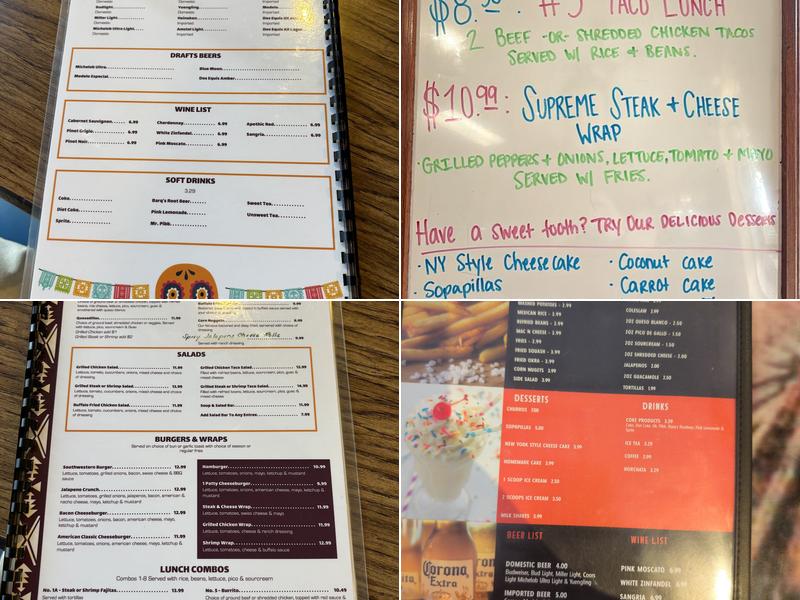 Budlight
Domestic
Miller Light
Domestic
Michelob Ultra Light
Domestic
Yuengling
Domestic
Heineken
Imported
Amstel Light
Imported
Modelo
Imported
Dos Equis
Imported
Dos Equis XX Lager
Imported
DRAFTS BEERS
Michelob Ultra
Blue Moon
Modelo Especial
Dos Equis Amber
WINE LIST
Cabernet Sauvignon 6.99
Chardonnay 6.99
Apothic Red 6.99
Pinot Grigio 6.99
White Zinfandel 6.99
Sangria 6.99
Pinot Noir 6.99
Pink Moscato 6.99
SOFT DRINKS
3.29
Coke
Barq's Root Beer
Sweet Tea
Diet Coke
Pink Lemonade
Unsweet Tea
Sprite
Mr. Pibb
TACO LUNCH
2 BEEF -OR- SHREDDED CHICKEN TACOS
SERVED W/ RICE + BEANS.
$10.99: SUPREME STEAK + CHEESE
WRAP
·GRILLED PEPPERS + ONIONS, LETTUCE, TOMATO + MAYO
SERVED W/ FRIES.
Have a sweet tooth? TRY OUR DELICIOUS Desserts
·NY Style Cheesecake
·Coconut cake
·Sopapillas
·Carrot cake
Quesadillas 11.99
Choice of ground beef, shredded chicken or veggies. Served
with lettuce, pico, sourcream & guac
Grilled Chicken add $1
Grilled Steak or Shrimp add $2
Corn Nuggets 9.99
Our famous battered and deep fried, served with choice of
dressing
Spicy Jalapeno Cheese Balls
9.99
Served with ranch dressing
SALADS
Grilled Chicken Salad 11.99
Lettuce, tomato, cucumbers, onions, mixed cheese and choice
of dressing
Grilled Steak or Shrimp Salad 13.99
Lettuce, tomato, cucumbers, onions, mixed cheese and choice
of dressing
Buffalo Fried Chicken Salad 11.99
Lettuce, tomato, cucumbers, onions, mixed cheese and choice
of dressing
Grilled Chicken Taco Salad 12.99
Filled with refried beans, lettuce, pico, sour cream, guac &
mixed cheese
Grilled Steak or Shrimp Taco Salad 14.99
Filled with refried beans, lettuce, pico, sour cream, guac &
mixed cheese
Soup & Salad Bar 11.99
Add Salad Bar To Any Entree 7.99
BURGERS & WRAPS
Served on choice of bun or garlic toast with choice of season or
regular fries
Southwestern Burger 12.99
Lettuce, tomatoes, grilled onions, bacon, swiss cheese & BBQ
sauce
Jalapeno Crunch 12.99
Lettuce, tomatoes, grilled onions, jalapenos, bacon, american &
nacho cheese, mayo, ketchup & mustard
Bacon Cheeseburger 12.99
Lettuce, tomatoes, onions, bacon, american cheese, mayo,
ketchup & mustard
American Classic Cheeseburger 11.99
Lettuce, tomatoes, onions, american cheese, mayo, ketchup &
mustard
Hamburger 10.99
Lettuce, tomatoes, onions, mayo, ketchup & mustard
1 Patty Cheeseburger 9.99
Lettuce, tomatoes, onions, american cheese, mayo, ketchup &
mustard
Steak & Cheese Wrap 11.99
Lettuce, tomatoes, swiss cheese & mayo
Grilled Chicken Wrap 11.99
Lettuce, tomatoes, cheese & ranch dressing
Shrimp Wrap 12.99
Lettuce, tomatoes, cheese & buffalo sauce
LUNCH COMBOS
Combos 1-8 Served with rice, beans, lettuce, pico & sourcream
No. 1A - Steak or Shrimp Fajitas 13.99
Served with tortillas
No. 5 - Burrito 10.49
Choice of ground beef or shredded chicken, topped with red sauce &
MASHED POTATOES - 2.99
MEXICAN RICE - 2.99
REFRIED BEANS - 2.99
MAC N CHEESE - 2.99
FRIES - 2.99
FRIED SQUASH - 3.99
FRIED OKRA - 3.99
CORN NUGGETS 3.99
SIDE SALAD 3.99
COLESLAW 2.99
2OZ QUESO BLANCO - 2.50
2OZ PICO DE GALLO - 1.50
2OZ SOURCREAM - 1.50
2OZ SHREDDED CHEESE - 2.00
JALAPENOS 2.00
2OZ GUACAMOLE 2.50
TORTILLAS 1.99
DESSERTS
CHURROS 7.00
SOPAPILLAS 5.00
NEW YORK STYLE CHEESE CAKE 3.99
HOMEMADE CAKE 3.99
1 SCOOP ICE CREAM 2.50
2 SCOOPS ICE CREAM 3.50
MILK SHAKES 3.99
DRINKS
COKE PRODUCTS 3.29
ICE TEA 3.29
COFFEE 2.99
HORCHATA 3.29
BEER LIST
DOMESTIC BEER 4.00
Budweiser, Bud Light, Miller Light, Coors
Light Michelob Ultra Light & Yuengling
IMPORTED BEER 5.00
WINE LIST
PINK MOSCATO 6.99
WHITE ZINFANDEL 6.99
SANGRIA 6.99
Corona
Extra